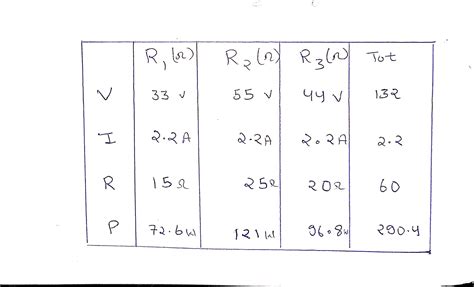 R₁(Ω) R₂(Ω) R₃(Ω) Tot
V 33 v 55 v 44 v 132
I 2.2A 2.2A 2.2A 2.2
R 15Ω 25Ω 20Ω 60
P 72.6w 121w 96.8w 290.4